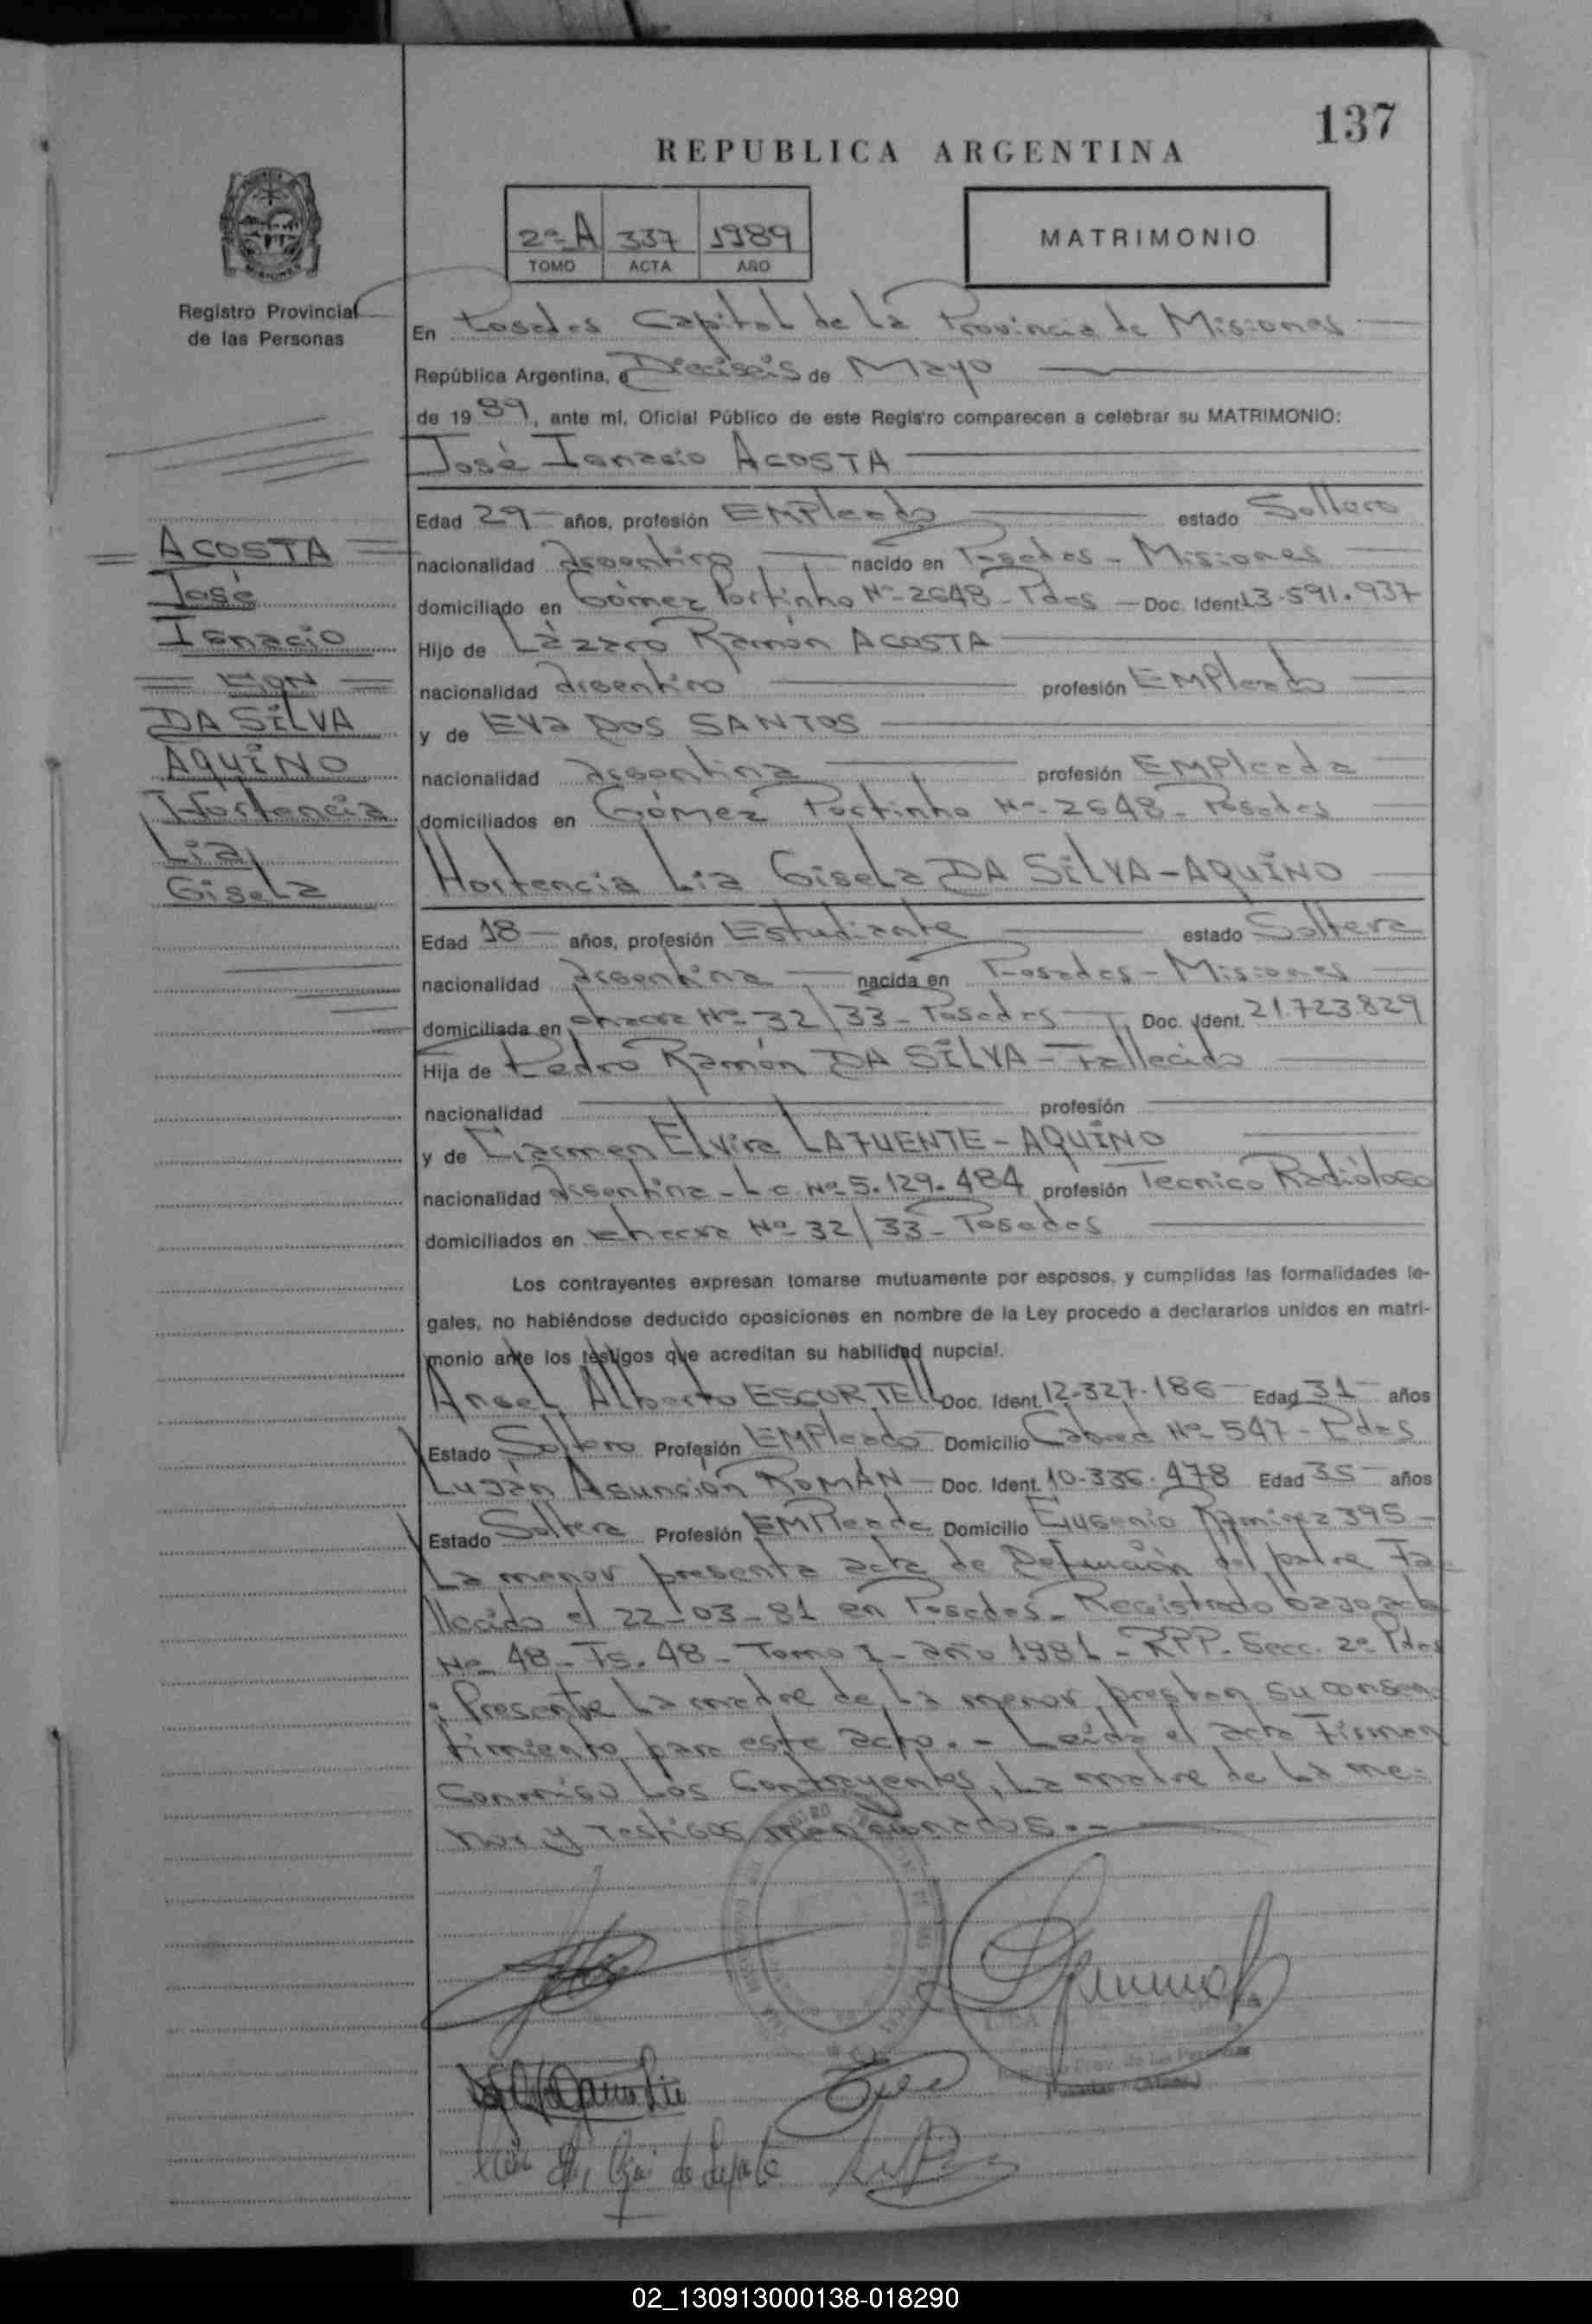 137
REPUBLICA ARGENTINA
2ª A 337 1989
TOMO ACTA AÑO
MATRIMONIO
Registro Provincial
de las Personas
En Posadas Capital de la Provincia de Misiones
República Argentina, a Dieciseis de Mayo
de 1989, ante mí, Oficial Público de este Registro comparecen a celebrar su MATRIMONIO:
José Ignacio ACOSTA
Edad 29 años, profesión EMPleado estado Soltero
nacionalidad Argentino nacido en Posadas - Misiones
domiciliado en Gómez Portinho Nº 2648 - Pdas - Doc. Ident 13.591.937
Hijo de Lázaro Ramón ACOSTA
nacionalidad argentino profesión EMPleado
y de EVa DOS SANTOS
nacionalidad argentina profesión EMPleada
domiciliados en Gómez Portinho Nº 2648 - Posadas
ACOSTA
José
Ignacio
= CON =
DA SILVA
AQUINO
Hortencia
Lia
Gisela
Hortencia Lia Gisela DA SILVA - AQUINO
Edad 18 años, profesión Estudiante estado Soltera
nacionalidad argentina nacida en Posadas - Misiones
domiciliada en chacra Nº 32/33 - Posadas Doc. Ident. 21.723.829
Hija de Pedro Ramón DA SILVA - Fallecido
nacionalidad profesión
y de Carmen Elvira LAFUENTE - AQUINO
nacionalidad argentina - L.C. Nº 5.129.484 profesión Tecnico Radiólogo
domiciliados en chacra Nº 32/33 - Posadas
Los contrayentes expresan tomarse mutuamente por esposos, y cumplidas las formalidades le-
gales, no habiéndose deducido oposiciones en nombre de la Ley procedo a declararlos unidos en matri-
monio ante los testigos que acreditan su habilidad nupcial.
Angel Alberto ESCORTELL Doc. Ident. 12.327.186 Edad 31 años
Estado Soltero Profesión EMPleado Domicilio Cabred Nº 547 - Pdas
Luján Asunción ROMÁN - Doc. Ident. 10.336.478 Edad 35 años
Estado Soltera Profesión EMPleada Domicilio Eugenio Ramirez 395 -
La menor presenta acta de Defunción del padre Fa-
llecido el 22-03-81 en Posadas - Registrado bajo acta
Nº 48 - Fs. 48 - Tomo I - año 1981 - RPP - Secc. 2ª Pdas
; Presente La madre de La menor prestan su consen-
timiento para este acto. - Leída el acta Firman
Conmigo Los Contrayentes, La madre de La me-
nor y Testigos mencionados. -
02_130913000138-018290